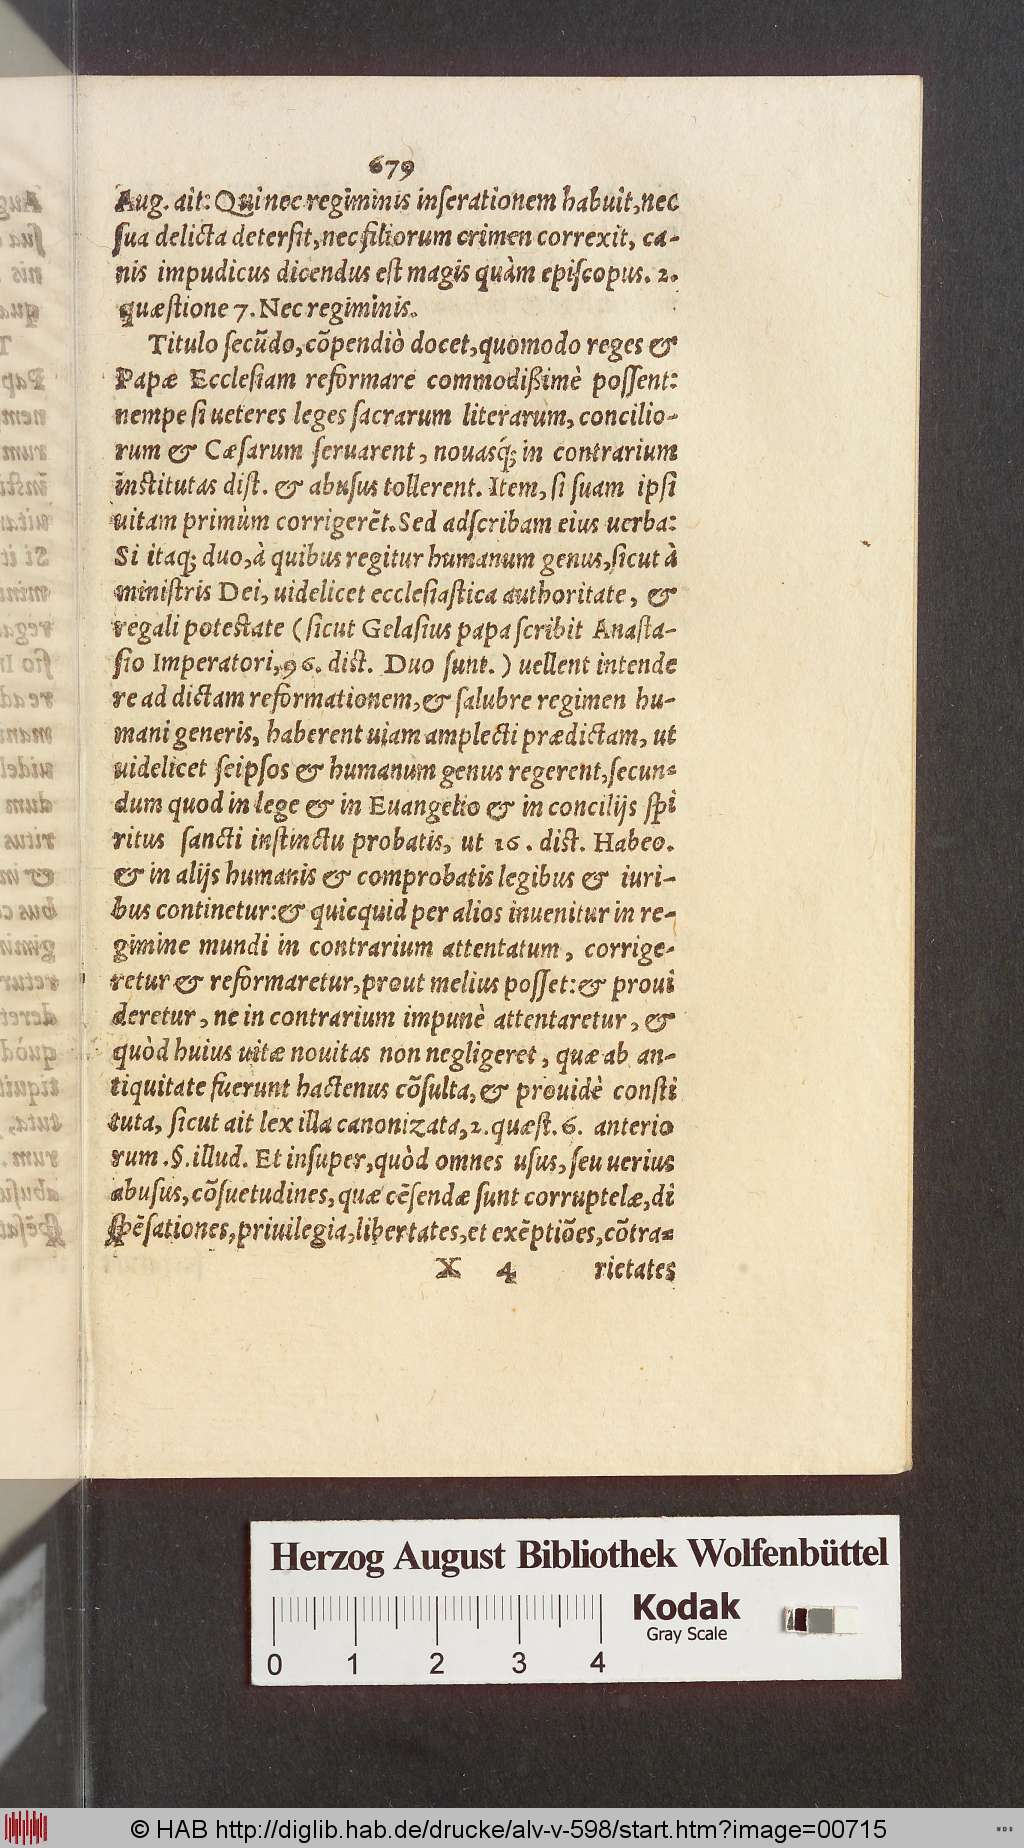 679
Aug. ait: Qui nec regiminis inserationem habuit, nec
sua delicta detersit, nec filiorum crimen correxit, ca-
nis impudicus dicendus est magis quàm episcopus. 2.
quæstione 7. Nec regiminis.
Titulo secũdo, cõpendiò docet, quomodo reges &
Papæ Ecclesiam reformare commodißimè possent:
nempe si ueteres leges sacrarum literarum, concilio-
rum & Cæsarum seruarent, nouasq́; in contrarium
institutas dist. & abusus tollerent. Item, si suam ipsi
uitam primùm corrigerẽt. Sed adscribam eius uerba:
Si itaq; duo, à quibus regitur humanum genus, sicut à
ministris Dei, uidelicet ecclesiastica authoritate, &
regali potestate (sicut Gelasius papa scribit Anasta-
sio Imperatori, 96. dist. Duo sunt.) uellent intende
re ad dictam reformationem, & salubre regimen hu-
mani generis, haberent uiam amplecti prædictam, ut
uidelicet seipsos & humanum genus regerent, secun-
dum quod in lege & in Euangelio & in concilijs spi
ritus sancti instinctu probatis, ut 16. dist. Habeo.
& in alijs humanis & comprobatis legibus & iuri-
bus continetur: & quicquid per alios inuenitur in re-
gimine mundi in contrarium attentatum, corrige-
retur & reformaretur, prout melius posset: & proui
deretur, ne in contrarium impunè attentaretur, &
quòd huius uitæ nouitas non negligeret, quæ ab an-
tiquitate fuerunt hactenus cõsulta, & prouidè consti
tuta, sicut ait lex illa canonizata, 2. quæst. 6. anterio
rum. §. illud. Et insuper, quòd omnes usus, seu uerius
abusus, cõsuetudines, quæ cẽsendæ sunt corruptelæ, di
spẽsationes, priuilegia, libertates, et exẽptiões, cõtra-
X 4 rietates
Herzog August Bibliothek Wolfenbüttel
Kodak
Gray Scale
0 1 2 3 4
© HAB http://diglib.hab.de/drucke/alv-v-598/start.htm?image=00715